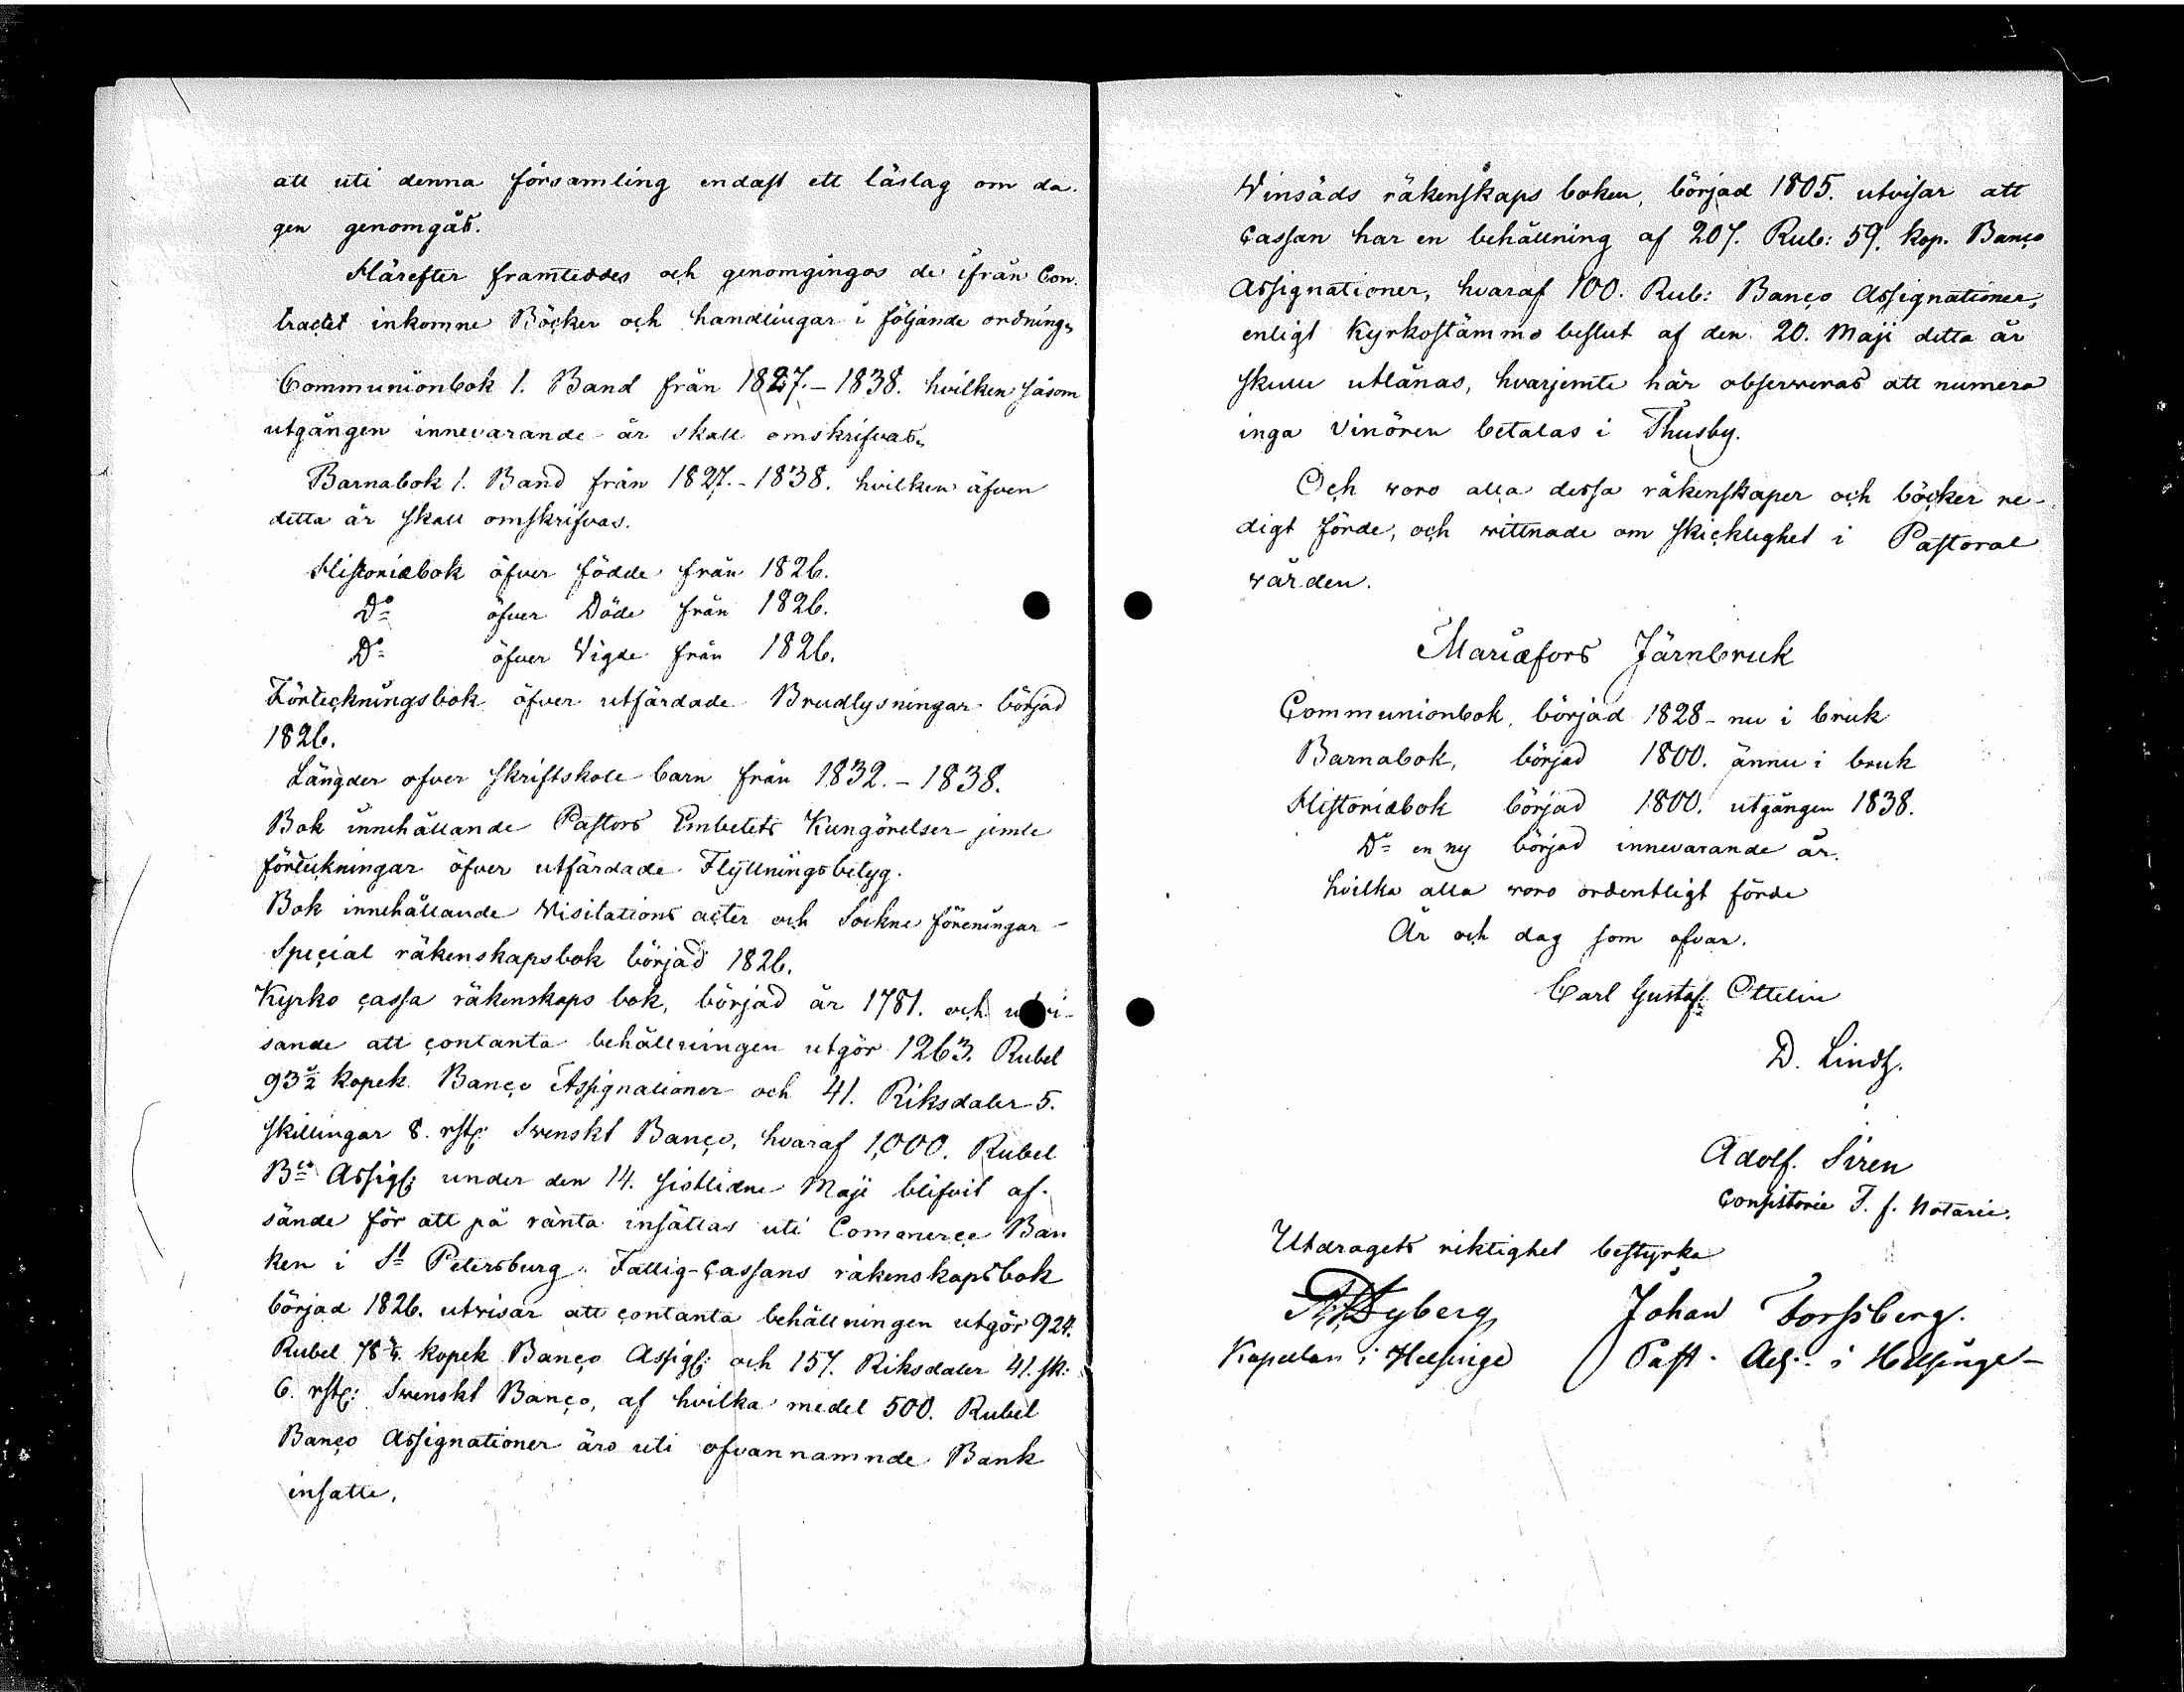 att uti denna församling endast ett läslag om da-
gen genomgås.
Härefter framteddes och genomgingos de ifrån Con-
tractet inkomne Böcker och handlingar i följande ordning,
Communionbok 1. Band från 1827.-1838. hvilken såsom
utgången innevarande år skall omskrifvas,
Barnabok 1. Band från 1827.-1838. hvilken äfven
detta år skall omskrifvas.
Historiæbok öfver födde från 1826.
Do öfver Döde från 1826.
Do öfver Vigde från 1826.
Förteckningsbok öfver utfärdade Brudlysningar börjad
1826.
Längder ofver skriftskole barn från 1832.-1838.
Bok innehållande Pastors Embetets Kungörelser jemte
förteckningar öfver utfärdade Flyttningsbetyg.
Bok innehållande Visitations acter och Sockne föreningar-
Special räkenskapsbok börjad 1826.
Kyrko cassa räkenskaps bok, börjad år 1781. och utvi-
sande att contanta behållningen utgör 1263. Rubel
93½ kopek Banco Assignationer och 41. Riksdaler 5.
skillingar 8. rst: Svenskt Banco, hvaraf 1,000. Rubel
Bco Assig: under den 14. sistlidne Maji blifvit af-
sände för att på ränta insättas uti Commerce Ban
ken i St Petersburg. Fattig-Cassans räkenskapsbok
börjad 1826. utvisar att contanta behållningen utgör 924.
Rubel kopek Banco Assig: och 157. Riksdaler 41. sk:
6. rst: Svenskt Banco, af hvilka medel 500. Rubel
Banco Assignationer äro uti ofvannamnde Bank
insatte.
Vinsåds räkenskaps boken, börjad 1805. utvisar att
Cassan har en behållning af 207. Rub: 59. kop. Banco
Assignationer, hvaraf 100. Rub: Banco Assignationer,
enligt Kyrkostämmo beslut af den 20. Maji detta år
skulle utlånas, hvarjemte här observeras att numera
inga vinören betalas i Thusby.
Och voro alla dessa räkenskaper och böcker re-
digt förde, och vittnade om skicklighet i Pastoral
vården.
Mariæfors Järnbruk
Communionbok, börjad 1828- nu i bruk
Barnabok, börjad 1800. ännu i bruk
Historiæbok börjad 1800. utgången 1838.
Do en ny börjad innevarande år.
hvilka alla voro ordentligt förde
År och dag som ofvan.
Carl Gustaf Ottelin
D. Lindh.
Adolf. Siren
Consistorie T. f. Notarie.
Utdragets riktighet bestyrka
Dyberg Johan Forssberg.
Kapellan i Helsinge Past. Adj. i Helsinge-